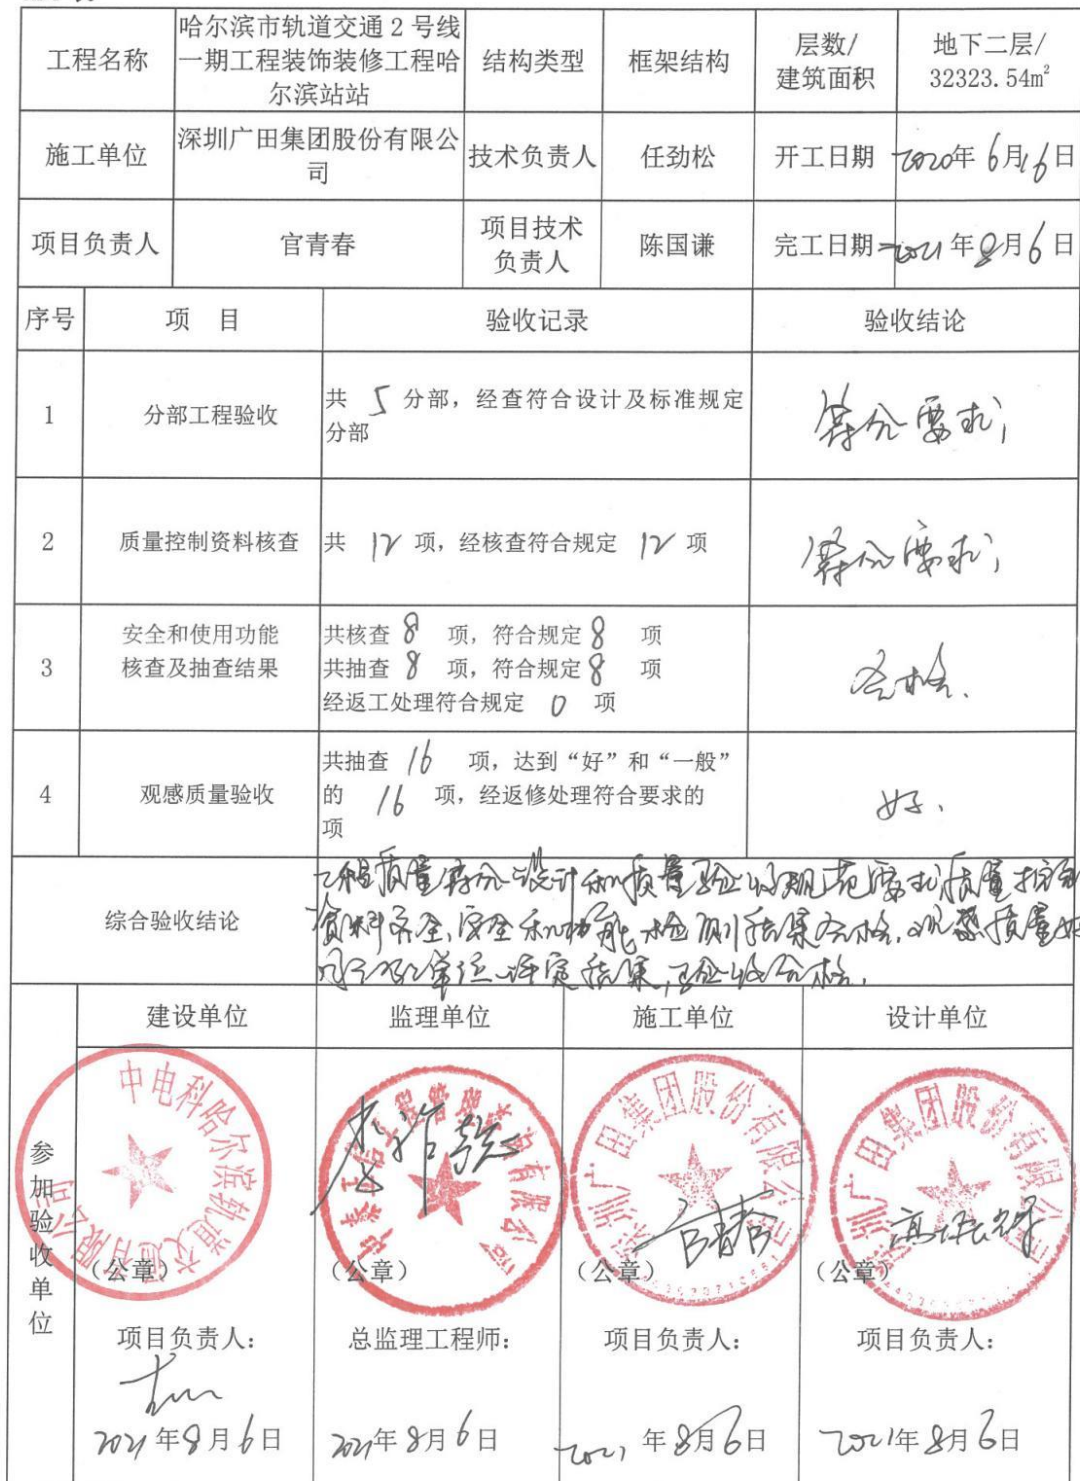 工程名称 哈尔滨市轨道交通2号线一期工程装饰装修工程哈尔滨站站 结构类型 框架结构 层数/建筑面积 地下二层/32323.54m²
施工单位 深圳广田集团股份有限公司 技术负责人 任劲松 开工日期 2020年6月16日
项目负责人 官青春 项目技术负责人 陈国谦 完工日期 2021年8月6日
序号 项 目 验收记录 验收结论
1 分部工程验收 共 5 分部，经查符合设计及标准规定 分部 符合要求；
2 质量控制资料核查 共 12 项，经核查符合规定 12 项 符合要求；
3 安全和使用功能核查及抽查结果 共核查 8 项，符合规定 8 项
共抽查 8 项，符合规定 8 项
经返工处理符合规定 0 项 合格.
4 观感质量验收 共抽查 16 项，达到“好”和“一般”
的 16 项，经返修处理符合要求的
项 好.
综合验收结论 工程质量符合设计和质量验收规范要求,质量控制
资料齐全,安全和功能检测结果合格,观感质量好
验收合格.
参加验收单位
建设单位 监理单位 施工单位 设计单位
中电科哈尔滨轨道交通有限公司
深圳广田集团股份有限公司
深圳广田集团股份有限公司
（公章） （公章） （公章） （公章）
官青春
项目负责人： 总监理工程师： 项目负责人： 项目负责人：
2021年8月6日 2021年8月6日 2021年8月6日 2021年8月6日